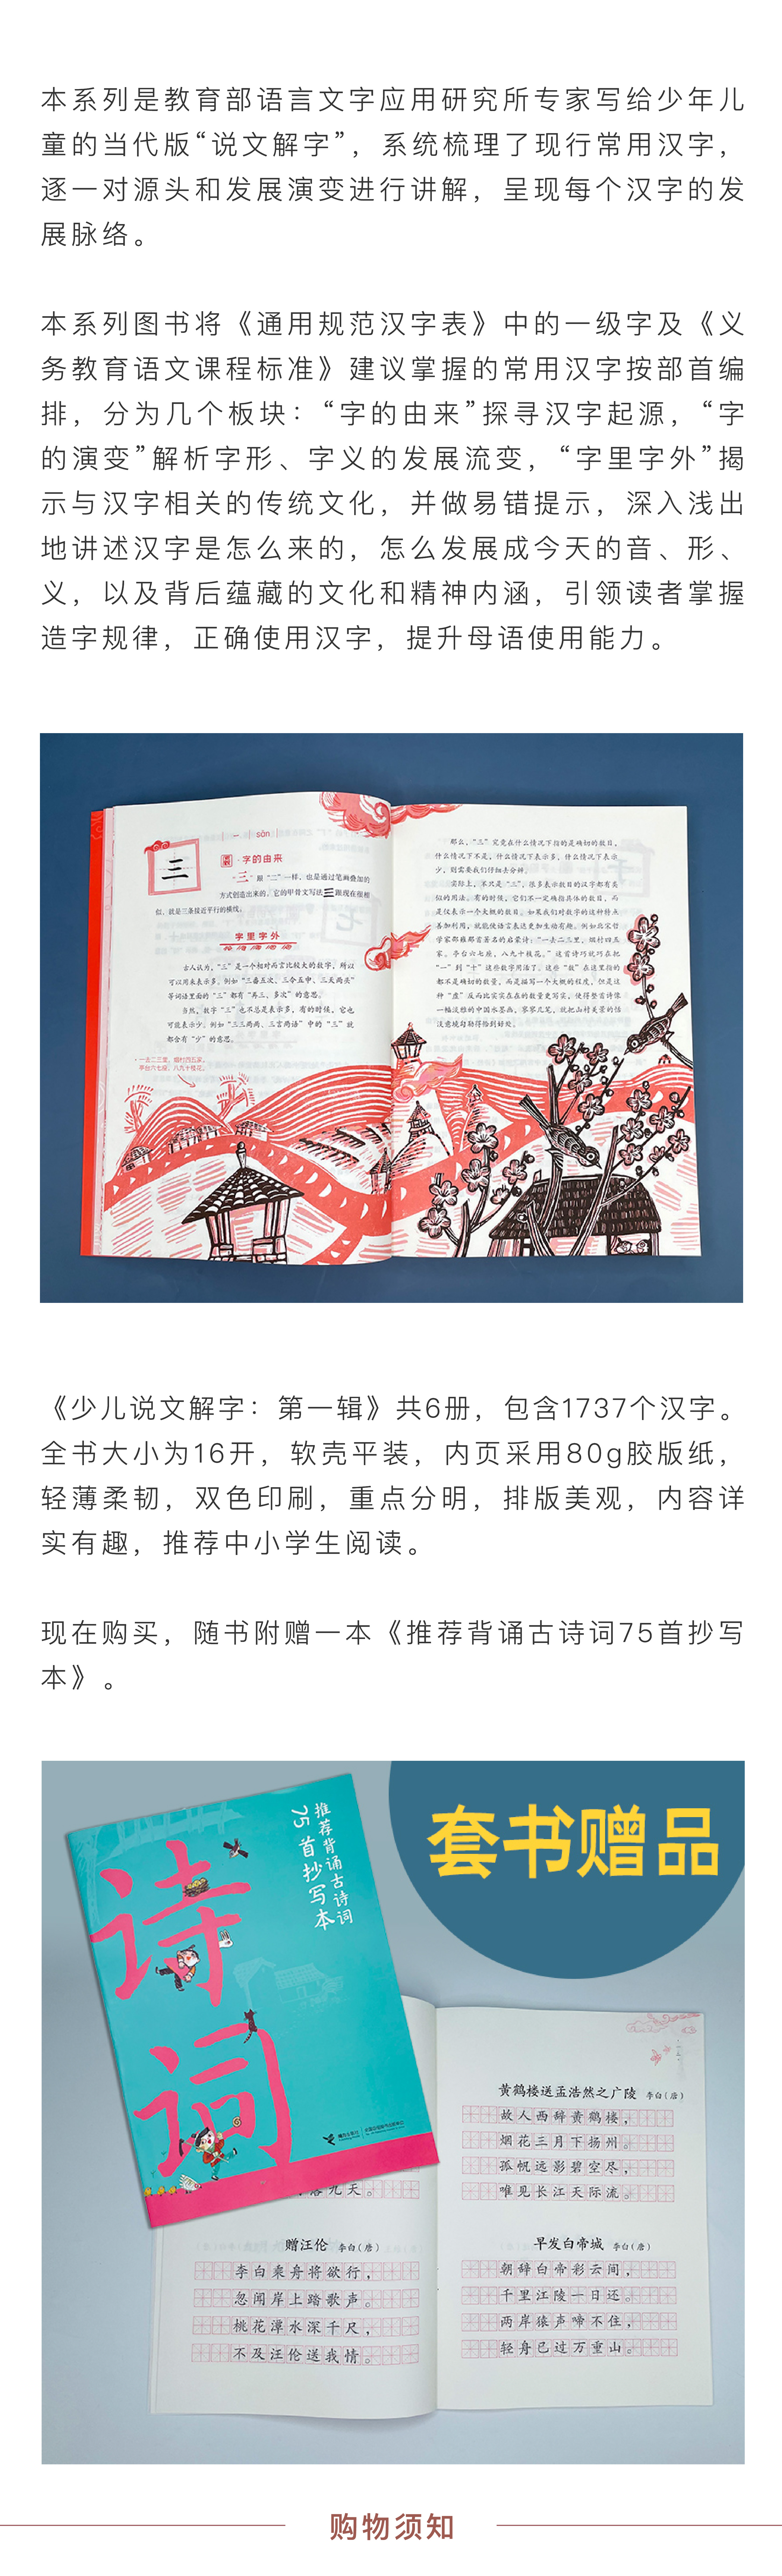 本系列是教育部语言文字应用研究所专家写给少年儿
童的当代版“说文解字”，系统梳理了现行常用汉字，
逐一对源头和发展演变进行讲解，呈现每个汉字的发
展脉络。
本系列图书将《通用规范汉字表》中的一级字及《义
务教育语文课程标准》建议掌握的常用汉字按部首编
排，分为几个板块：“字的由来”探寻汉字起源，“字
的演变”解析字形、字义的发展流变，“字里字外”揭
示与汉字相关的传统文化，并做易错提示，深入浅出
地讲述汉字是怎么来的，怎么发展成今天的音、形、
义，以及背后蕴藏的文化和精神内涵，引领读者掌握
造字规律，正确使用汉字，提升母语使用能力。
一 sān
三
字的由来
“三”跟“二”一样，也是通过笔画叠加的
方式创造出来的。它的甲骨文写法三跟现在很相
似，就是三条接近平行的横线。
字里字外
古人认为，“三”是一个相对而言比较大的数字，所以
可以用来表示多。例如“三番五次、三令五申、三天两头”
等词语里面的“三”都有“再三、多次”的意思。
当然，数字“三”也不总是表示多，有的时候，它也
可能表示少。例如“三三两两、三言两语”中的“三”就
都含有“少”的意思。
一去二三里，烟村四五家。
亭台六七座，八九十枝花。
那么，“三”究竟在什么情况下指的是确切的数目，
什么情况下不是，什么情况下表示多，什么情况下表示
少，则需要我们仔细去分辨。
实际上，不只是“三”，很多表示数目的汉字都有类
似的用法。有的时候，它们不一定确指具体的数目，而
是仅表示一个大概的数目。如果我们对数字的这种特点
善加利用，就能使语言表达更加生动有趣。例如北宋哲
学家邵雍那首著名的启蒙诗：“一去二三里，烟村四五
家。亭台六七座，八九十枝花。”这首诗巧就巧在把
“一”到“十”这些数字用活了。这些“数”在这里指的
都不是确切的数量，而是描写一个大概的程度。但是这
种“虚”反而比实实在在的数量更写实，使得整首诗像
一幅淡雅的中国水墨画，寥寥几笔，就把山村美景的恬
淡意境勾勒得恰到好处。
《少儿说文解字：第一辑》共6册，包含1737个汉字。
全书大小为16开，软壳平装，内页采用80g胶版纸，
轻薄柔韧，双色印刷，重点分明，排版美观，内容详
实有趣，推荐中小学生阅读。
现在购买，随书附赠一本《推荐背诵古诗词75首抄写
本》。
套书赠品
推荐背诵古诗词
75首抄写本
诗
词
落九天。
赠汪伦 李白（唐）
李白乘舟将欲行，
忽闻岸上踏歌声。
桃花潭水深千尺，
不及汪伦送我情。
黄鹤楼送孟浩然之广陵 李白（唐）
故人西辞黄鹤楼，
烟花三月下扬州。
孤帆远影碧空尽，
唯见长江天际流。
早发白帝城 李白（唐）
朝辞白帝彩云间，
千里江陵一日还。
两岸猿声啼不住，
轻舟已过万重山。
购物须知